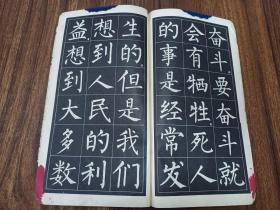 奋斗，要奋斗就
会有牺牲，死人
的事是经常发
生的。但是我们
想到人民的利
益，想到大多数